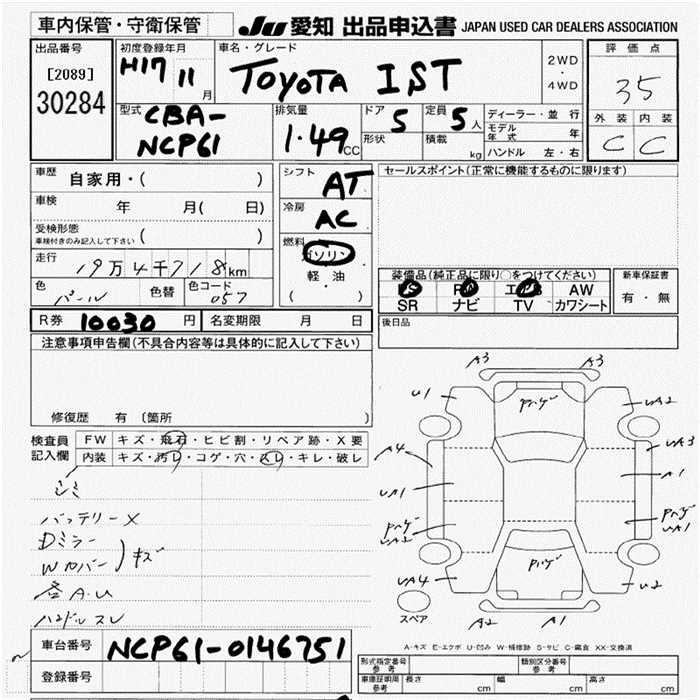 車内保管・守衛保管
JU 愛知 出品申込書 JAPAN USED CAR DEALERS ASSOCIATION
出品番号
[2089]
30284
初度登録年月
H17 11 月
車名・グレード
TOYOTA IST
2WD
・
4WD
評価点
35
外装 内装
C C
型式
CBA-
NCP61
排気量
1.49 CC
ドア 5
形状
定員 5 人
積載 kg
ディーラー・並行
モデル年式 年
ハンドル 左・右
車歴 自家用・( )
車検 年 月( 日)
受検形態
車検付きのみ記入して下さい ( )
走行 19万4千718km
色 パール 色替 色コード 057
シフト AT
冷房 AC
燃料 ガソリン
軽・油
( ・ )
セールスポイント(正常に機能するものに限ります)
装備品(純正品に限り○をつけてください)
AW
SR ナビ TV カワシート
新車保証書
有・無
後日品
R券 10030 円 名変期限 月 日
注意事項申告欄(不具合内容等は具体的に記入して下さい)
修復歴 有 〔箇所
検査員
記入欄
FW キズ・飛石・ヒビ割・リペア跡・X要
内装 キズ・汚レ・コゲ・穴・スレ・キレ・破レ
シミ
バッテリーX
Dミラー
Wカバー キズ
A.U
ハンドルスレ
A3 A3
U1 ハゲ UA2
A4 UA3
UA1 A1
ハゲ ハゲ
UA2 UA1
UA4 ハゲ U2
スペア
A2 A1
A-キズ E-エクボ U-凹み W-補修跡 S-サビ C-腐食 XX-交換済
車台番号 NCP61-0146751
登録番号
型式指定番号
参考
類別区分番号
参考
車庫証明用
参考
長さ cm 幅 cm 高さ cm